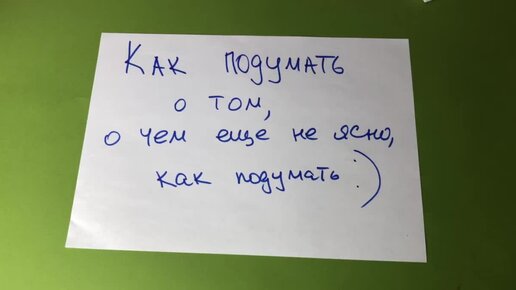 Как подумать
о том,
о чем еще не ясно,
как подумать :)